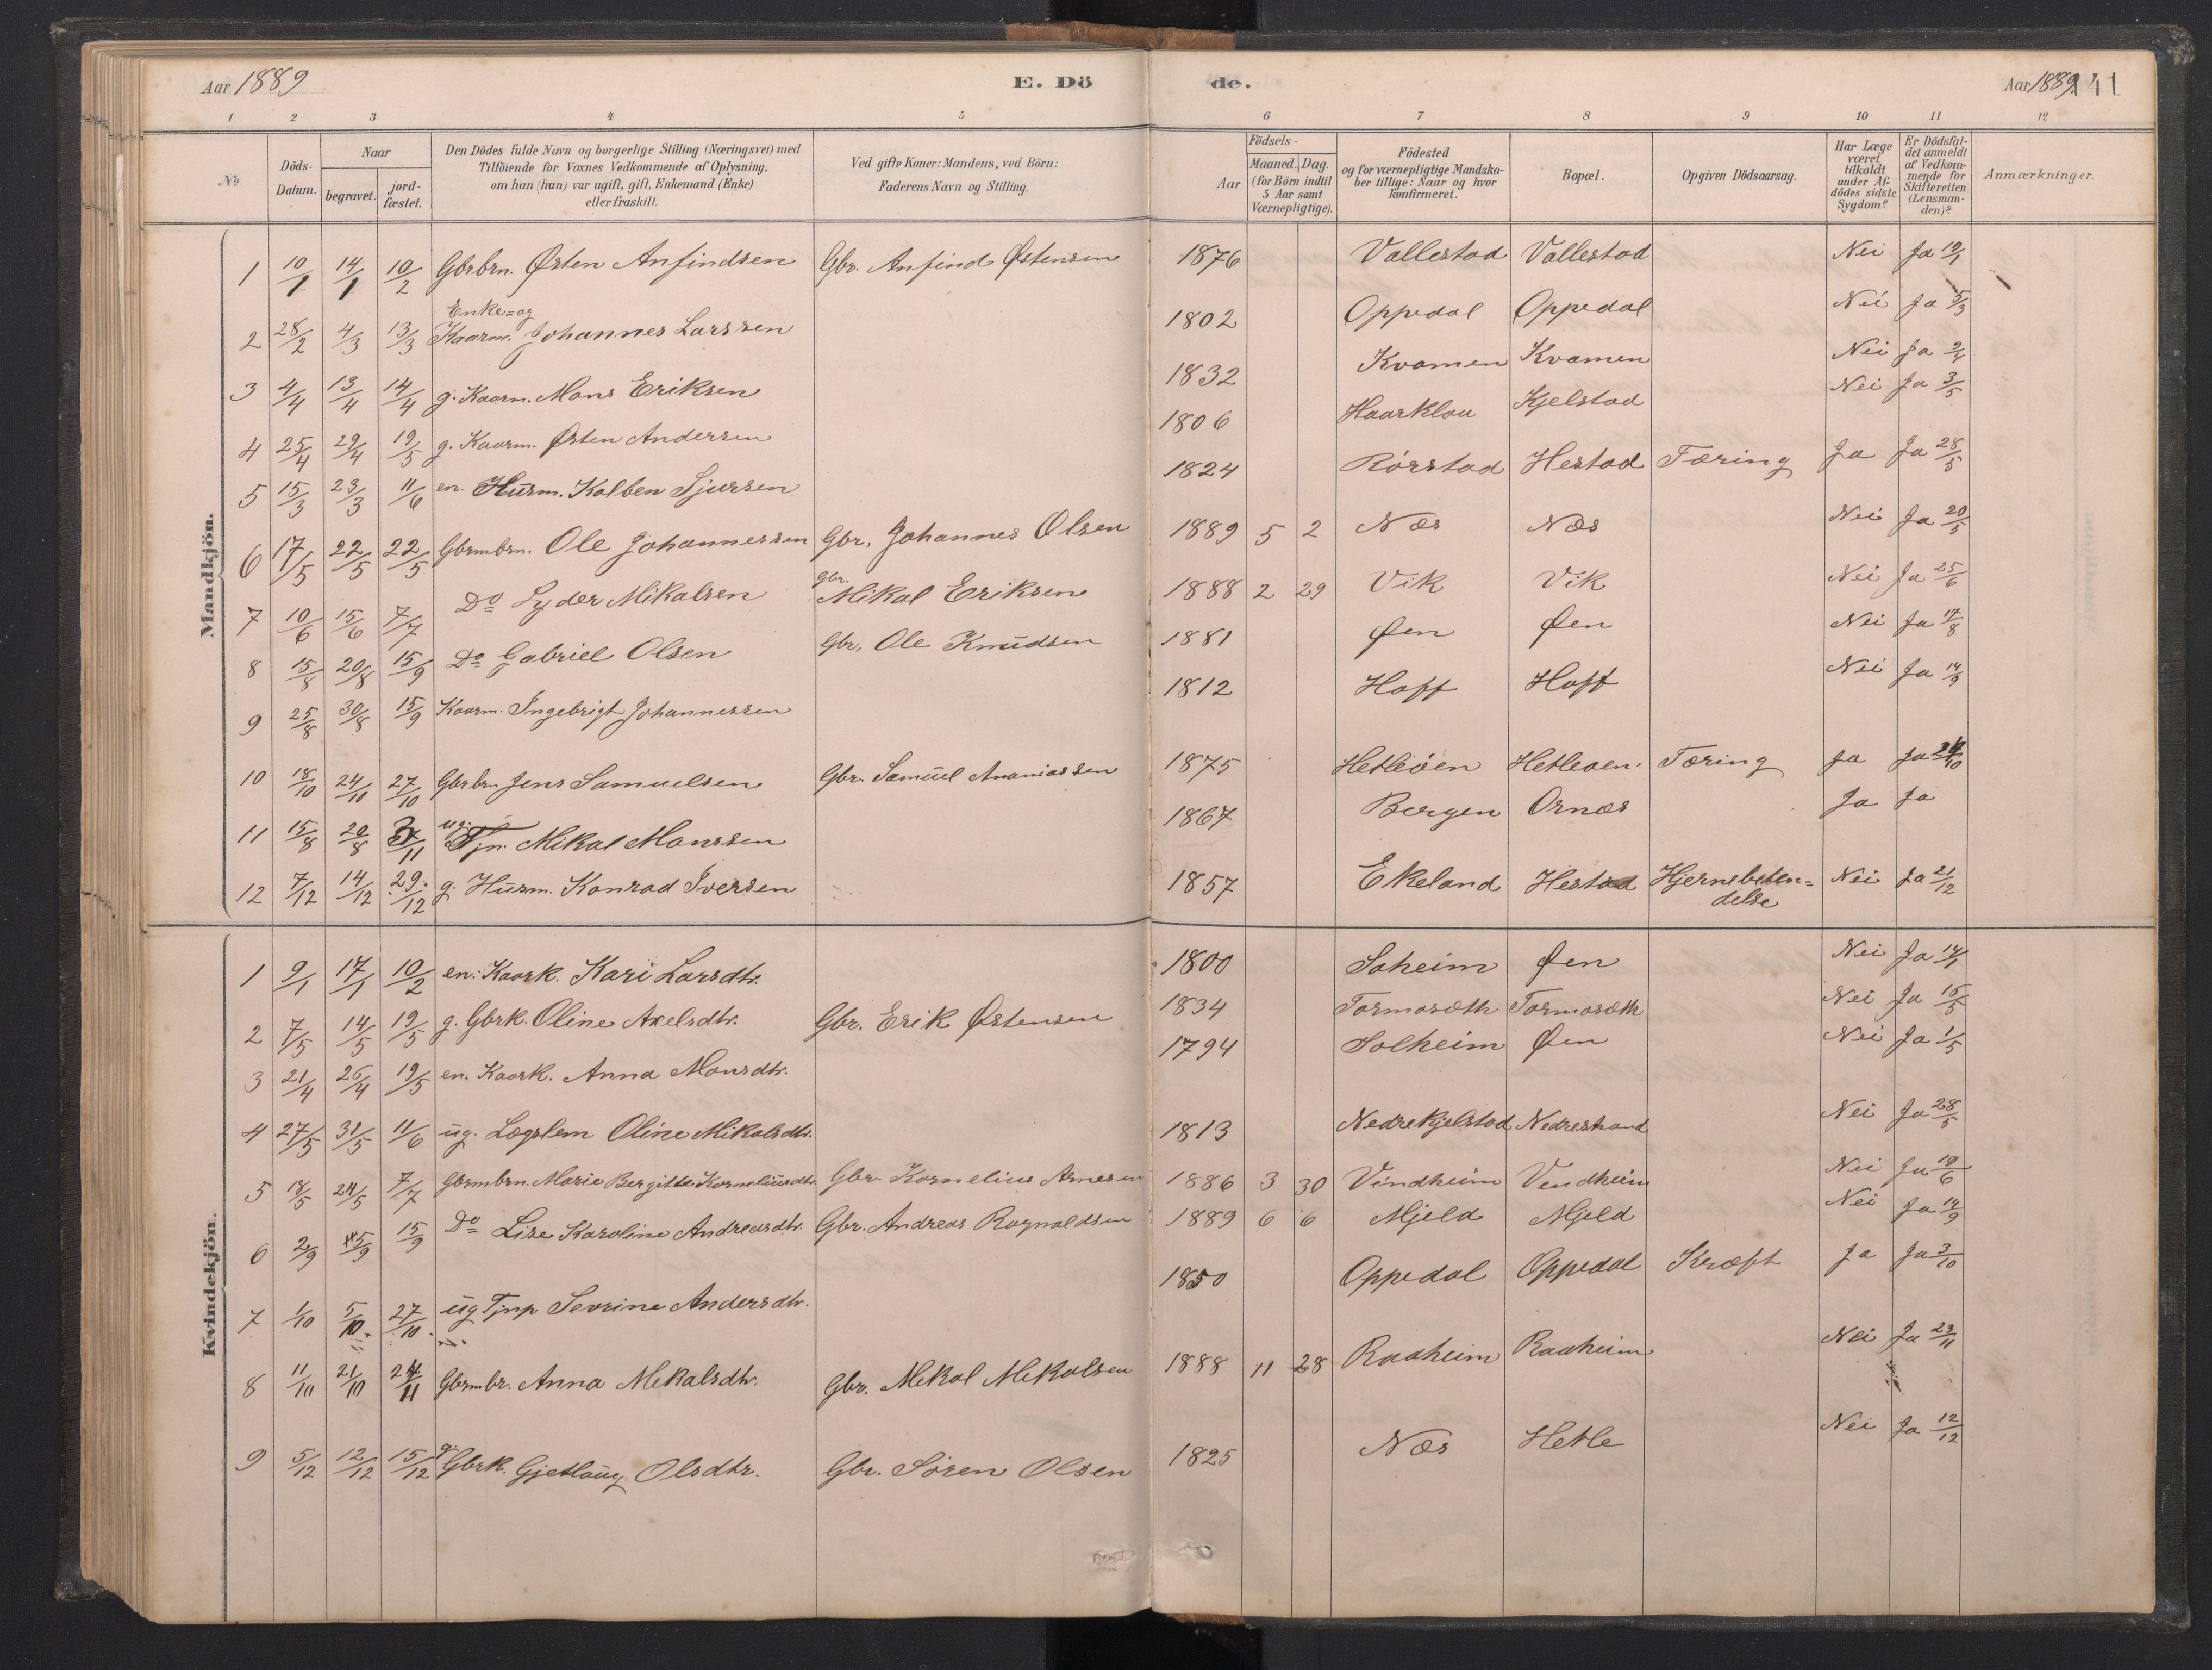 Aar 1889 E. Dö de. Aar 1889. 141
1 2 3 4 5 6 7 8 9 10 11 12
No Döds-Datum. Naar begravet. jordfæstet. Den Dödes fulde Navn og borgerlige Stilling (Næringsvei) med Tilföiende for Voxnes Vedkommende af Oplysning, om han (hun) var ugift, gift, Enkemand (Enke) eller fraskilt. Ved gifte Koner: Mandens, ved Börn: Faderens Navn og Stilling. Födsels- Aar Maaned. Dag. (for Börn indtil 5 Aar samt Værnepligtige). Födested og for værnepligtige Mandskaber tillige: Naar og hvor konfirmeret. Bopæl. Opgiven Dödsaarsag. Har Læge været tilkaldt under Afdödes sidste Sygdom? Er Dödsfaldet anmeldt af Vedkommende for Skifteretten (Lensmanden)? Anmærkninger.
Mandkjön.
1 10/1 14/1 10/2 Gbrbrn. Østen Anfindsen Gbr. Anfind Østensen 1876 Vallestad Vallestad Nei Ja 19/1
Enke=og
2 28/2 4/3 13/3 Kaarm. Johannes Larssen 1802 Oppedal Oppedal Nei Ja 5/3
3 4/4 13/4 14/4 g. Kaarm. Mons Eriksen 1832 Kvamen Kvamen Nei Ja 9/4
4 25/4 29/4 19/5 g. Kaarm. Østen Andersen 1806 Haarklau Kjelstad Nei Ja 3/5
5 15/3 23/3 11/6 en. Husm. Kolben Sjursen 1824 Rörstad Hestad Tæring Ja Ja 28/5
6 17/5 22/5 22/5 Gbrmbrn. Ole Johannessen Gbr. Johannes Olsen 1889 5 2 Næs Næs Nei Ja 20/5
7 10/6 15/6 7/7 Do Lyder Mikalsen Gbr. Mikal Eriksen 1888 2 29 Vik Vik Nei Ja 25/6
8 15/8 20/8 15/9 Do Gabriel Olsen Gbr. Ole Knudsen 1881 Øen Øen Nei Ja 17/8
9 25/8 30/8 15/9 Kaarm. Ingebrigt Johannessen 1812 Hoff Hoff Nei Ja 14/9
10 18/10 24/10 27/10 Gbrbrn. Jens Samuelsen Gbr. Samuel Ananiassen 1875 Hetleöen Hetleøen. Tæring Ja Ja
11 15/8 20/8 ug. Tjn. Mikal Monssen 1867 Bergen Ornæs Ja Ja
12 7/12 14/12 29/12 g. Husm. Konrad Iversen 1857 Ekeland Hestad Hjernebeten=delse Nei Ja 21/12
Kvindekjön.
1 9/1 17/1 10/2 en. Kaark. Kari Larsdtr. 1800 Soheim Øen Nei Ja 14/1
2 7/5 14/5 19/5 g. Gbrk. Oline Axelsdtr. Gbr. Erik Østensen 1834 Tormosæth Tormosæth Nei Ja 15/5
3 21/4 26/4 19/5 en. Kaark. Anna Monsdtr. 1794 Solheim Øen Nei Ja 1/5
4 27/5 31/5 11/6 ug. Lægslem Oline Mikalsdtr. 1813 Nedrekjelstad Nedrestrand Nei Ja 28/5
5 18/5 24/5 7/7 Gbrmbrn. Marie Bergitte Korneliusdtr. Gbr. Kornelius Arnesen 1886 3 30 Vindheim Vindheim Nei Ja 19/6
6 2/9 15/9 Do Lise Karoline Andreasdtr. Gbr. Andreas Ragnvaldsen 1889 6 6 Mjeld Mjeld Nei Ja 14/9
7 1/10 5/10 27/10 ug Tjnp Sevrine Andersdtr. 1850 Oppedal Oppedal Kræft Ja Ja 3/10
8 11/10 21/10 24/11 Gbrmbr. Anna Mikalsdtr. Gbr. Mikal Mikalsen 1888 11 28 Raaheim Raaheim Nei Ja 23/11
9 5/12 12/12 15/12 g. Gbrk. Gjetlaug Olsdtr. Gbr. Sören Olsen 1825 Næs Hetle Nei Ja 12/12